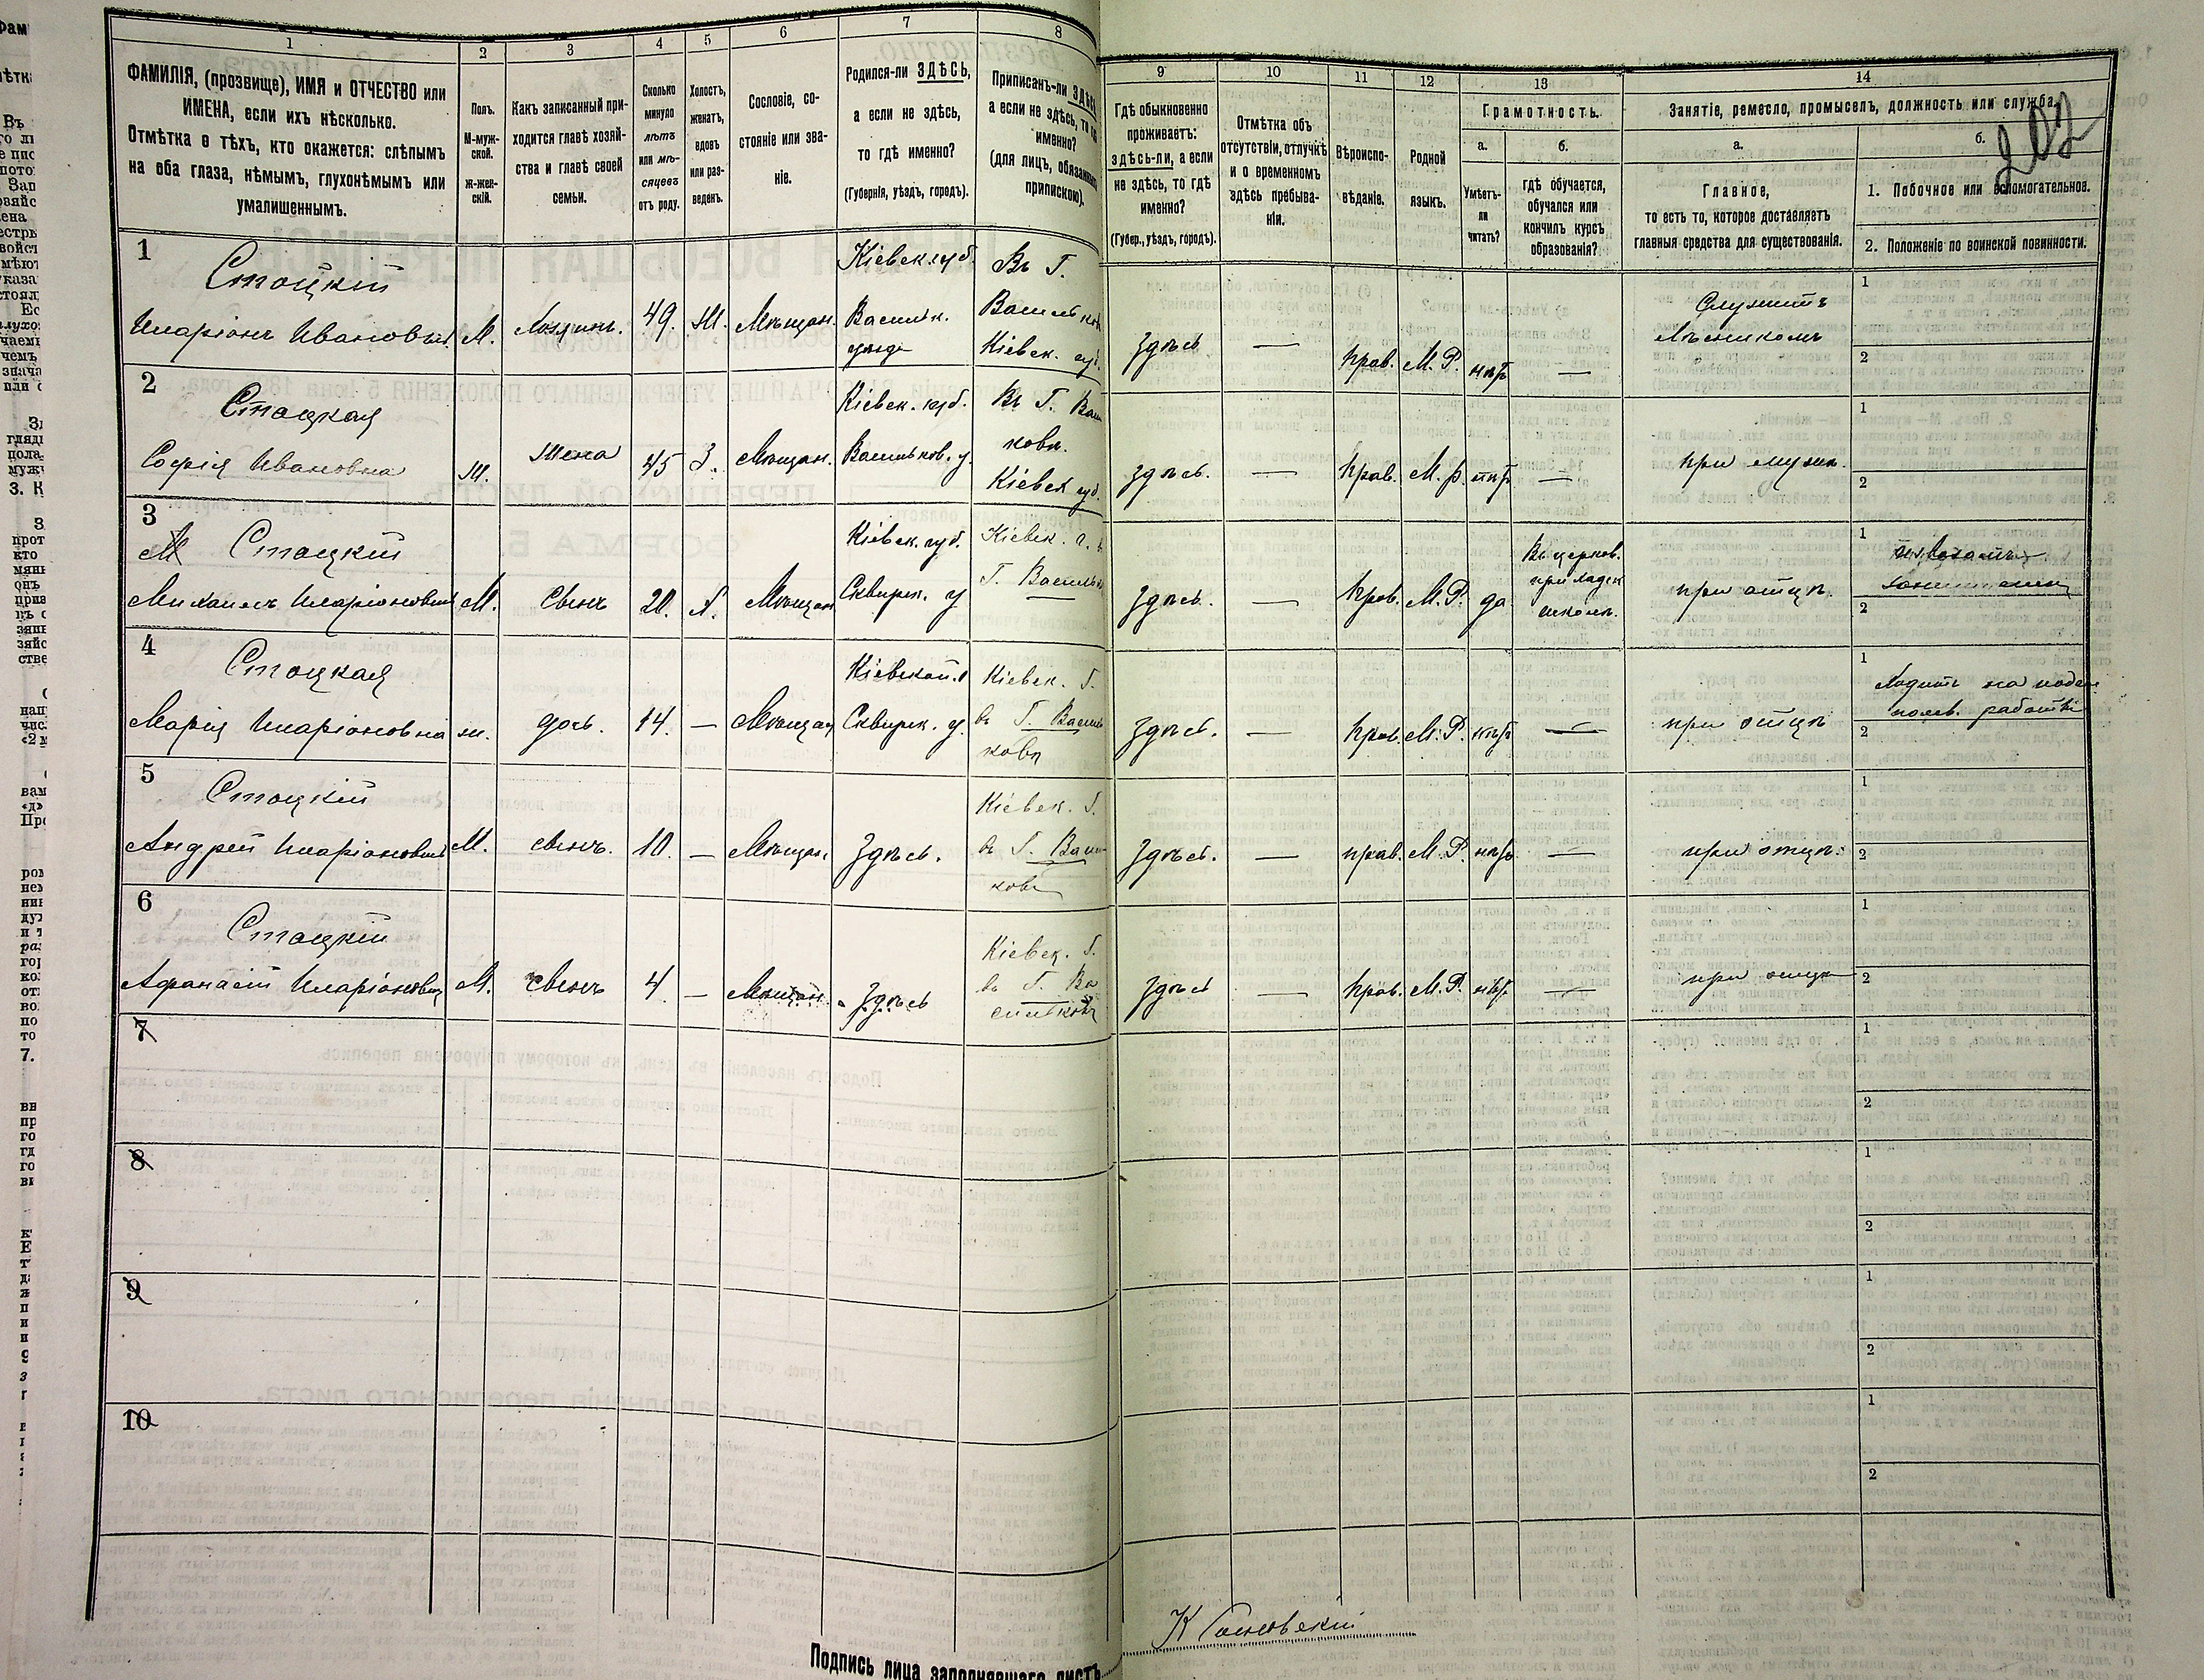 1
2
3
4
5
6
7
8
ФАМИЛІЯ, (прозвище), ИМЯ и ОТЧЕСТВО или
ИМЕНА, если ихъ нѣсколько.
Отмѣтка о тѣхъ, кто окажется: слѣпымъ
на оба глаза, нѣмымъ, глухонѣмымъ или
умалишеннымъ.
Полъ.
М-муж-
ской.
ж-жен-
скій.
Какъ записанный при-
ходится главѣ хозяй-
ства и главѣ своей
семьи.
Сколько
минуло
лѣтъ
или мѣ-
сяцевъ
отъ роду.
Холостъ,
женатъ,
вдовъ
или раз-
веденъ.
Сословіе, со-
стояніе или зва-
ніе.
Родился-ли ЗДѢСЬ,
а если не здѣсь,
то гдѣ именно?
(Губернія, уѣздъ, городъ).
Приписанъ-ли
а если не здѣсь, то гдѣ
именно?
(для лицъ,
припискою).
9
10
11
12
13
14
Гдѣ обыкновенно
проживаетъ:
здѣсь-ли, а если
не здѣсь, то гдѣ
именно?
(Губер., уѣздъ, городъ).
Отмѣтка объ
отсутствіи, отлучкѣ
и о временномъ
здѣсь пребыва-
ніи.
Вѣроиспо-
вѣданіе.
Родной
языкъ.
Грамотность.
а.
Умѣетъ-
ли
читать?
б.
гдѣ обучается,
обучался или
кончилъ курсъ
образованія?
Занятіе, ремесло, промыселъ, должность или служба.
202
а.
Главное,
то есть то, которое доставляетъ
главныя средства для существованія.
б.
1. Побочное или вспомогательное.
2. Положеніе по воинской повинности.
1
Стоцкій
Иларіонъ Ивановичъ
М.
Хозяинъ.
49.
Ж.
Мѣщан.
Кіевск. губ.
Васильк.
уезд
Въ Г.
Васильков
Кіевск. губ.
здѣсь
—
Прав.
М. Р.
нѣтъ
—
Служитъ
Лѣсникомъ
1
2
2
Стоцкая
Софія Ивановна
Ж.
жена
45
З.
Мѣщан.
Кіевск. губ.
Васильков. у.
Въ Г.
кова.
Кіевск губ.
здѣсь.
—
Прав.
М. Р.
нѣтъ
—
при мужѣ.
1
2
3
Стоцкій
Михаилъ Иларіоновичъ
М.
сынъ
20.
Х.
Мѣщан
Кіевск. губ.
Сквирск. у
Кіевск. г.
Г. Василь
здѣсь.
—
Прав.
М. Р.
да
Въ церков.
приходск
школѣ.
при отцѣ.
1
2
4
Стоцкая
Марія Иларіоновна
ж.
дочь.
14.
—
Мѣщан
Кіевской.
Сквирск. у.
Кіевск. Г.
въ Г. Василь
кова
здѣсь.
—
Прав.
М. Р.
нѣтъ
—
при отцѣ
1
Ходитъ на поден
полев. работы
2
5
Стоцкій
Андрей Иларіоновичъ
М.
сынъ.
10.
—
Мѣщан.
Здѣсь.
Кіевск. Г.
въ Г. Василь
кова
здѣсь.
—
прав.
М. Р.
нѣтъ
—
при отцѣ.
1
2
6
Стоцкій
Афанасій Иларіоновичъ
М.
сынъ
4
—
Мѣщан.
Здѣсь
Кіевск. Г.
въ Г. Ва
сильковѣ
здѣсь
—
Прав.
М. Р.
нѣтъ
—
при отцѣ
1
2
7
1
2
8
1
2
9
1
2
10
1
2
Подпись лица заполнявшаго листъ